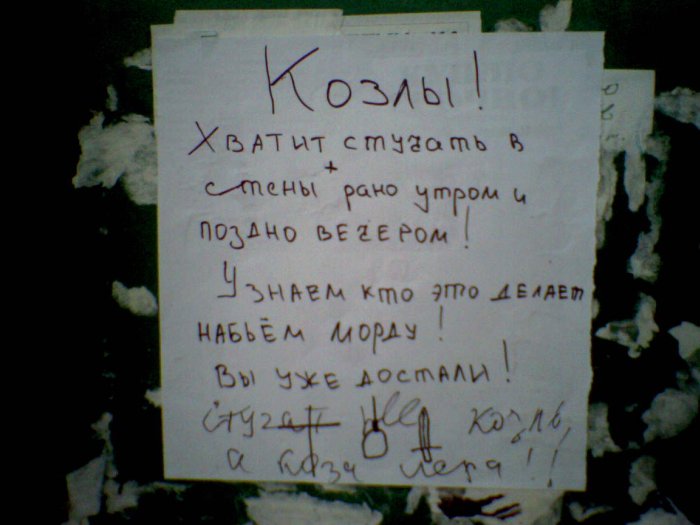 Козлы!
Хватит стучать в
стены + рано утром и
поздно вечером!
Узнаем кто это делает
набьём морду!
Вы уже достали!
Стучат не козлы
а коза Лера!!